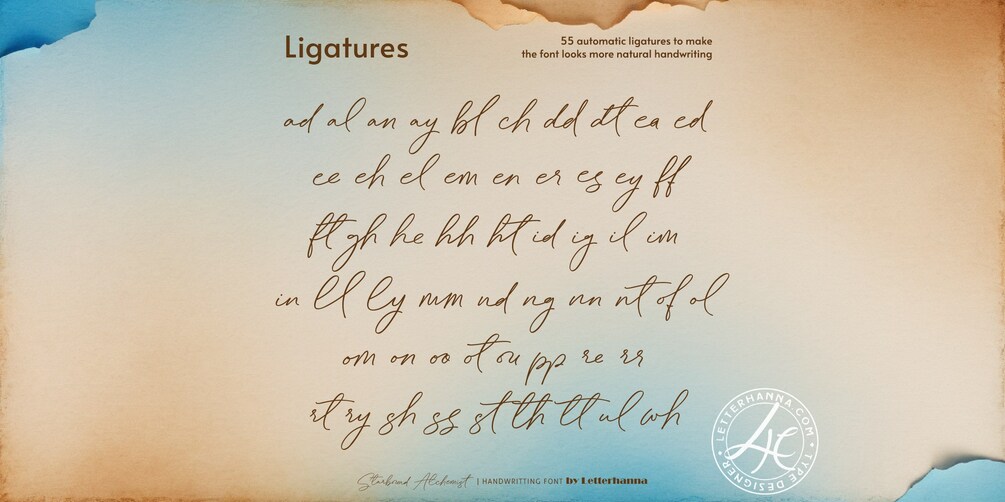 Ligatures
55 automatic ligatures to make
the font looks more natural handwriting
ad al an ay bl ch dd dt ea ed
ee eh el em en er es ey ff
ft gh he hh ht id ig il im
in ll ly mm nd ng nn nt of ol
om on oo ot ou pp re rr
rt ry sh ss st th tt ul wh
Starbound Alchemist | HANDWRITTING FONT by Letterhanna
LETTERHANNA.COM • TYPE DESIGNER •
LH